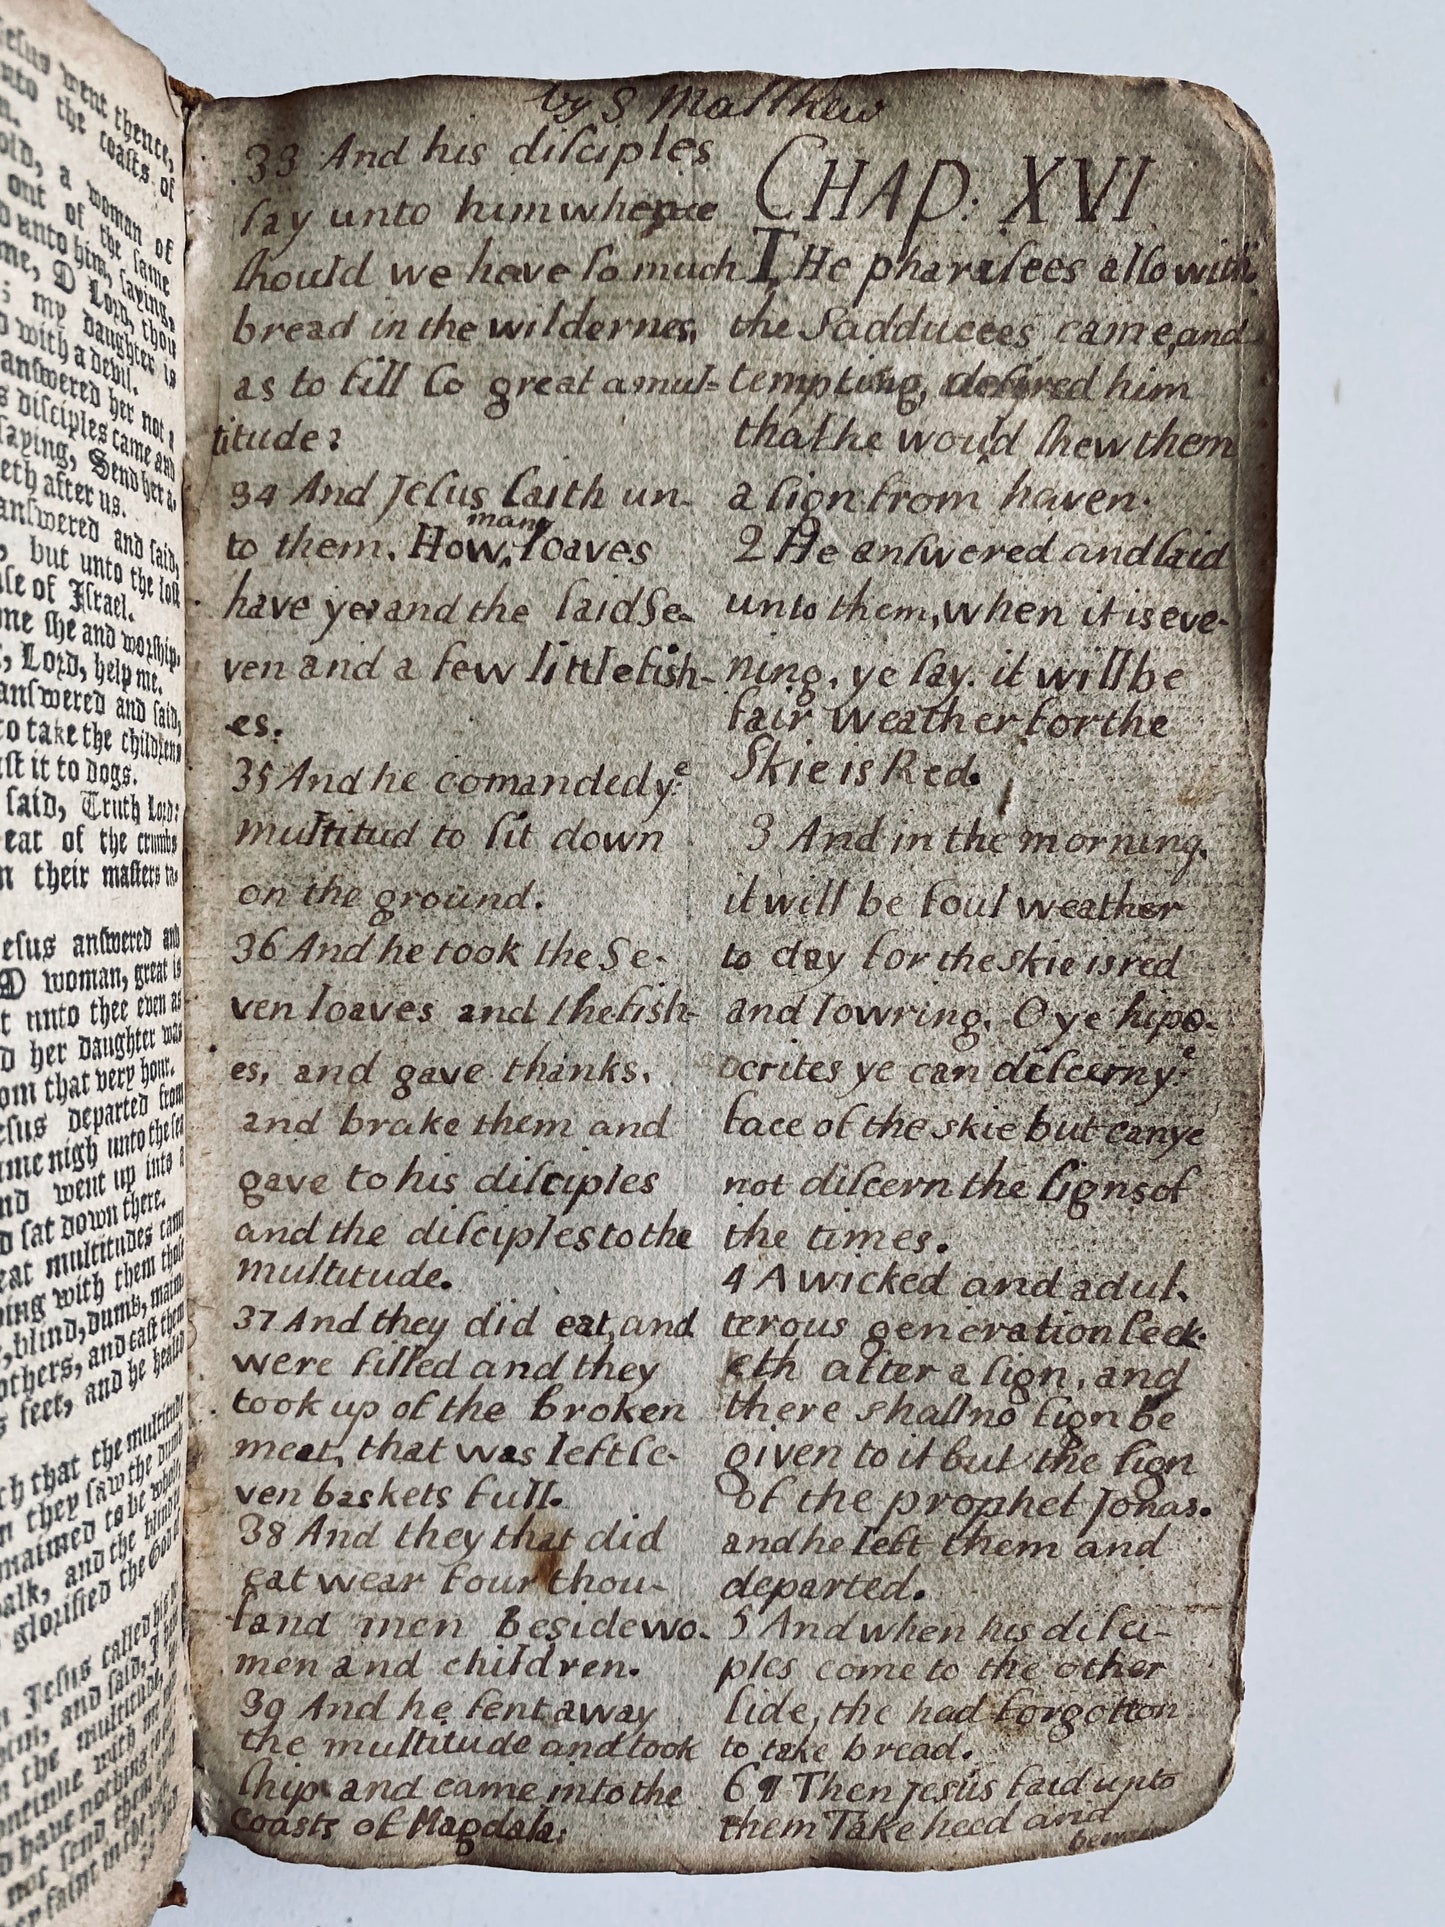 Jeſus went thence,
into the coaſts of
a woman of
out of the ſame
unto him, ſaying,
me, O Lord, thou
my daughter is
with a devil.
anſwered her not a
diſciples came and
ſaying, Send her a-
after us.
anſwered and ſaid,
but unto the loſt
of Iſrael.
ſhe and worſhip-
Lord, help me.
anſwered and ſaid,
to take the childrens
it to dogs.
ſaid, Truth Lord:
eat of the crumbs
their maſters ta-
Jeſus anſwered and
O woman, great is
unto thee even as
her daughter was
that very hour.
Jeſus departed from
nigh unto the ſea
went up into a
ſat down there.
great multitudes came
with them thoſe
blind, dumb, maim-
others, and caſt them
feet, and he healed
that the multitude
they ſaw the dumb
maimed to be whole,
and the blind to
glorified the God of
Jeſus called his di-
and ſaid, I have
the multitude,
continue with me
have nothing to eat:
not ſend them
faint in the way
by S Matthew
33 And his diſciples
ſay unto him whence
ſhould we have ſo much
bread in the wildernes,
as to fill ſo great a mul-
titude?
34 And Jeſus ſaith un-
to them. How many loaves
have ye and the ſaid Se-
ven and a few little fish-
es.
35 And he comanded yͤ
multitud to ſit down
on the ground.
36 And he took the Se-
ven loaves and the fish-
es, and gave thanks,
and brake them and
gave to his diſciples
and the diſciples to the
multitude.
37 And they did eat, and
were filled and they
took up of the broken
meat, that was left ſe-
ven baskets full.
38 And they that did
eat wear four thou-
ſand men Beside wo-
men and children.
39 And he ſent away
the multitude and took
ſhip and came into the
coasts of Magdala:
CHAP: XVI
THe phariſees alſo with
the Sadducees came, and
tempting, deſired him
that he would ſhew them
a ſign from haven.
2 He anſwered and ſaid
unto them, when it is eve-
ning, ye ſay. it will be
fair weather for the
Skie is Red.
3 And in the morning.
it will be foul weather
to day for the skie is red
and lowring, O ye hipo-
ocrites ye can diſcern yͤ
face of the skie but can ye
not diſcern the ſigns of
the times.
4 A wicked and adul-
terous generation ſeek-
eth after a ſign, and
there shall no ſign be
given to it but the ſign
of the prophet Jonas.
and he left them and
departed.
5 And when his diſci-
ples come to the other
ſide, the had forgotton
to take bread.
6 ¶ Then Jesus ſaid unto
them Take heed and